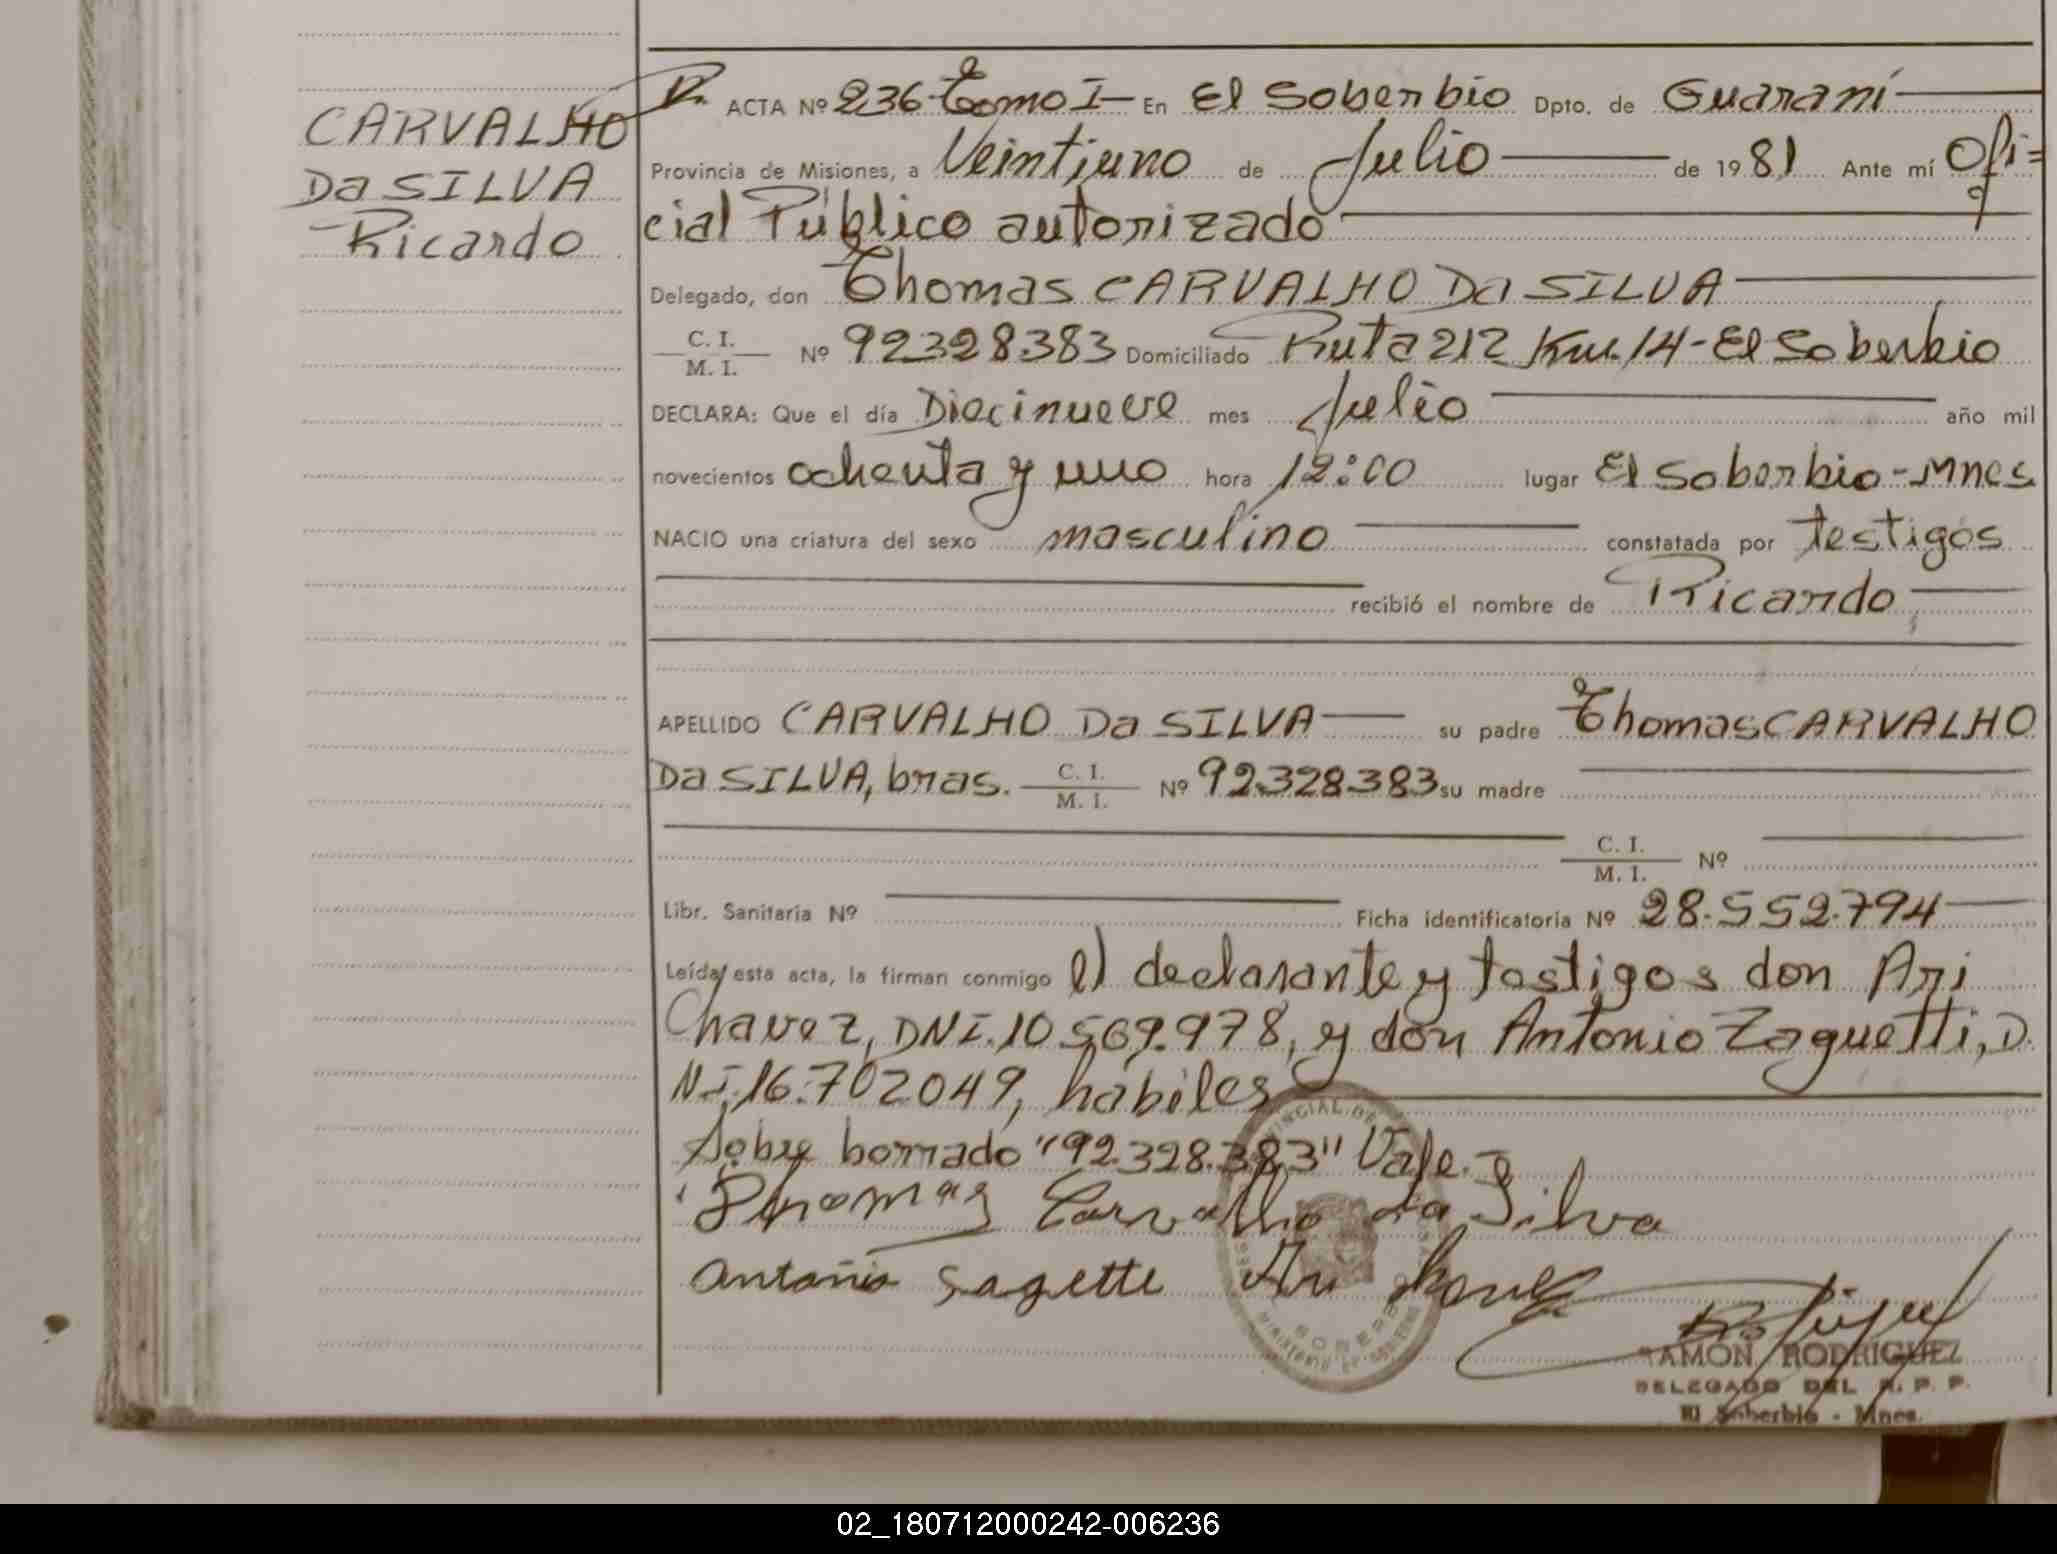 CARVALHO
Da SILVA
Ricardo
ACTA Nº 236-Tomo I- En El Soberbio Dpto. de Guaraní
Provincia de Misiones, a Veintiuno de Julio de 1981 Ante mí Ofi=
cial Público autorizado
Delegado, don Thomas CARVALHO Da SILVA
C. I. / M. I. Nº 92328.383 Domiciliado Ruta 212 Km. 14 - El Soberbio
DECLARA: Que el día Diecinueve mes Julio año mil
novecientos ochenta y uno hora 12:00 lugar El Soberbio-Mnes
NACIO una criatura del sexo masculino constatada por testigos
recibió el nombre de Ricardo
APELLIDO CARVALHO Da SILVA su padre Thomas CARVALHO
Da SILVA, bras. C. I. / M. I. Nº 92.328.383 su madre
C. I. / M. I. Nº
Libr. Sanitaria Nº Ficha identificatoria Nº 28.552.794
Leída esta acta, la firman conmigo el declarante y testigos don Ari
Chavez, DNI. 10.569.978, y don Antonio Zaguetti, D.
NI. 16.702049, habiles
Sobre borrado "92.328.383" Vale.
Thomas Carvalho da Silva
Antonio Sagette Ari
RAMON RODRIGUEZ
DELEGADO DEL R. P. P.
El Soberbio - Mnes.
02_180712000242-006236